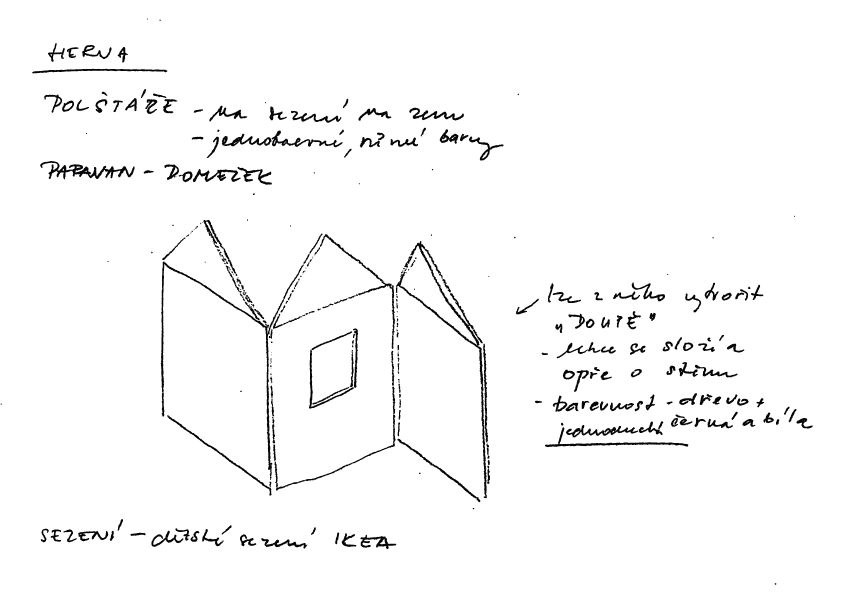 HERNA
POLŠTÁŘE - na sezení na zemi
- jednobarevné, různé barvy
PARAVAN - DOMEČEK
lze z něho vytvořit
„DOUPĚ"
- lehce se složí a
opře o stěnu
- barevnost - dřevo +
jednoduché černá a bílá
SEZENÍ - dětské sezení IKEA